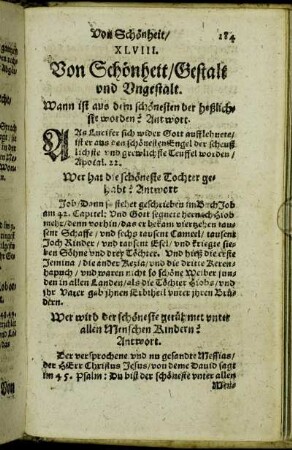 Von Schönheit/ 184
XLVIII.
Von Schönheit/Gestalt
vnd Vngestalt.
Wann ist aus dem schönesten der heßlich-
ste worden? Antwort.
Als Lucifer sich wider Gott aufflehnete/
ist er aus den schönesten Engel der scheuß-
lichste vnd grewlichste Teuffel worden/
Apocal. 22.
Wer hat die schöneste Tochter ge-
habt? Antwort
Job/Dann so stehet geschrieben im Buch Job
am 42. Capitel: Vnd Gott segnete hernach Hiob
mehr/denn vorhin/das er bekam vierzehen tau-
sent Schaffe/ vnd sechs tausent Cameel/ tausent
Joch Rinder/ vnd tausent Esel/ vnd kriegte sie-
ben Söhne vnd drey Töchter. Vnd hieß die erste
Jemina/die ander Kezia/ vnd die dritte Keren-
hapuch/ vnd waren nicht so schöne Weiber funn-
den in allen Landen/als die Töchter Hiobs/ vnd
ihr Vater gab ihnen Erbtheil vnter ihren Brü-
dern.
Wer wird der schöneste gerühmet vnter
allen Menschen Kindern?
Antwort.
Der versprochene vnd nu gesandte Messias/
der HErr Christus Jesus/von deme David sagt
im 45. Psalm: Du bist der schöneste vnter allen